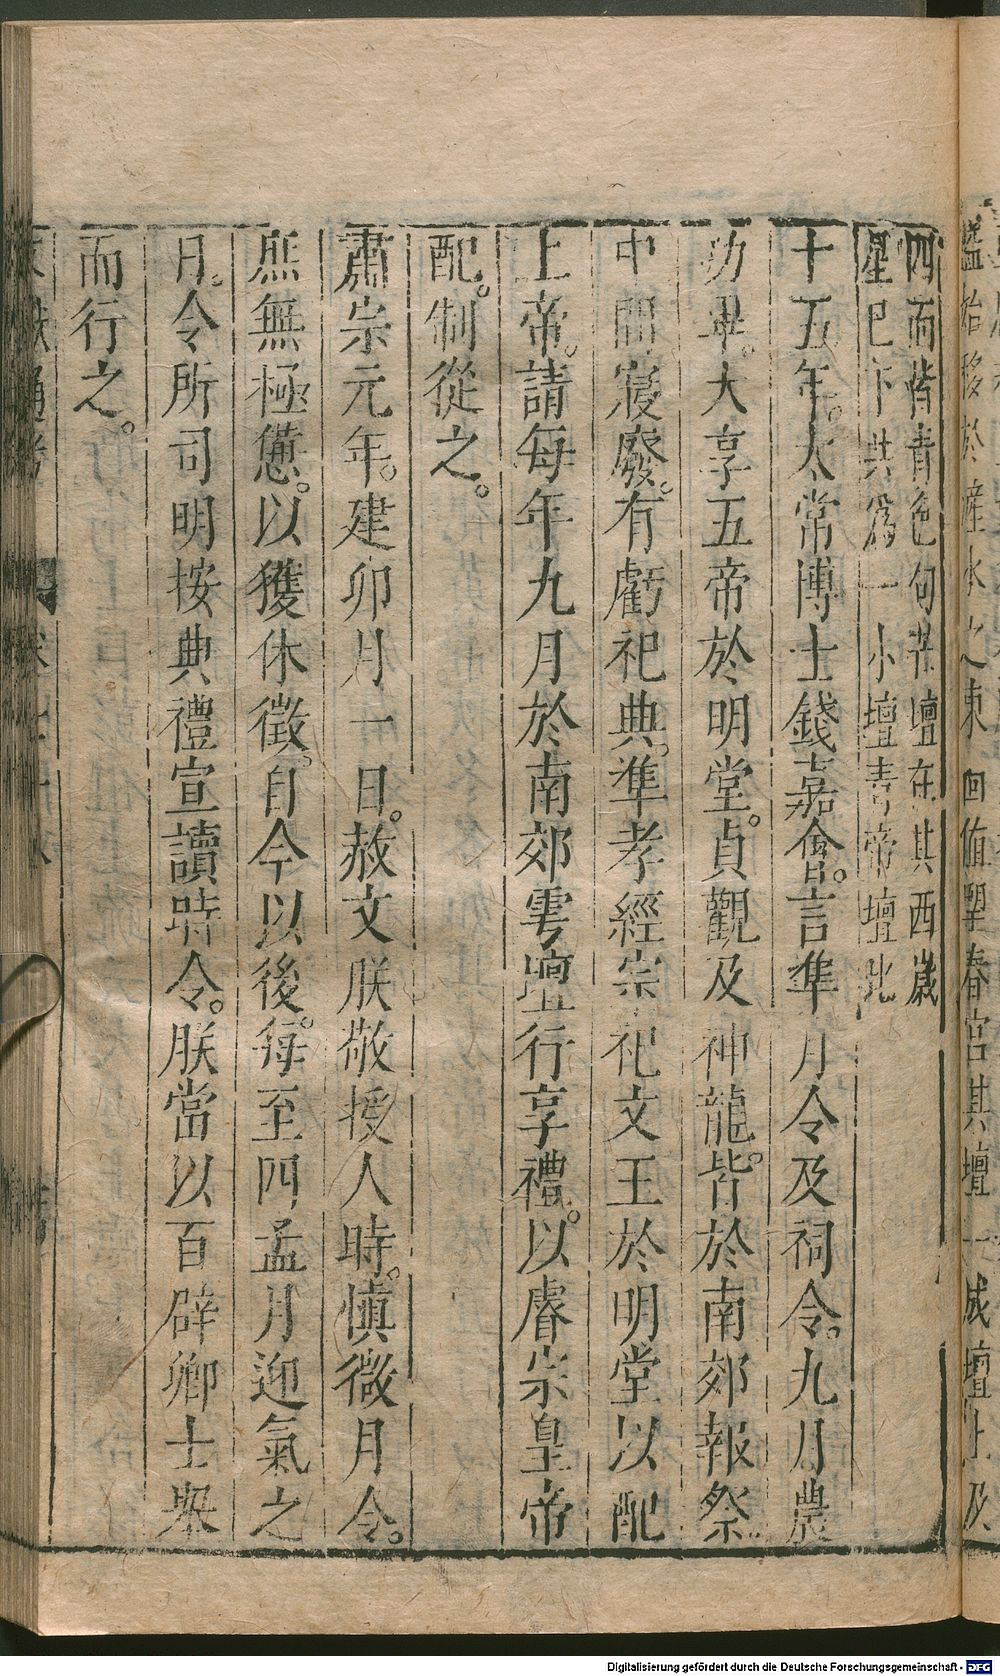 壇上及
四面皆青色勾芒壇在其西歲
星巳下共爲一小壇青帝壇北
十五年。太常博士錢嘉會。言準月令及祠令。九月農
功畢。大享五帝於明堂。貞觀及神龍。皆於南郊報祭
中間寢廢。有虧祀典。準孝經宗祀文王於明堂以配
上帝。請每年九月於南郊雩壇行享禮。以睿宗皇帝
配。制從之。
肅宗元年。建卯月一日。赦文朕敬授人時。愼徽月令。
庶無極備。以獲休徵。自今以後。每至四孟月迎氣之
月。令所司明按典禮宣讀時令。朕當以百辟卿士舉
而行之。
Digitalisierung gefördert durch die Deutsche Forschungsgemeinschaft - DFG